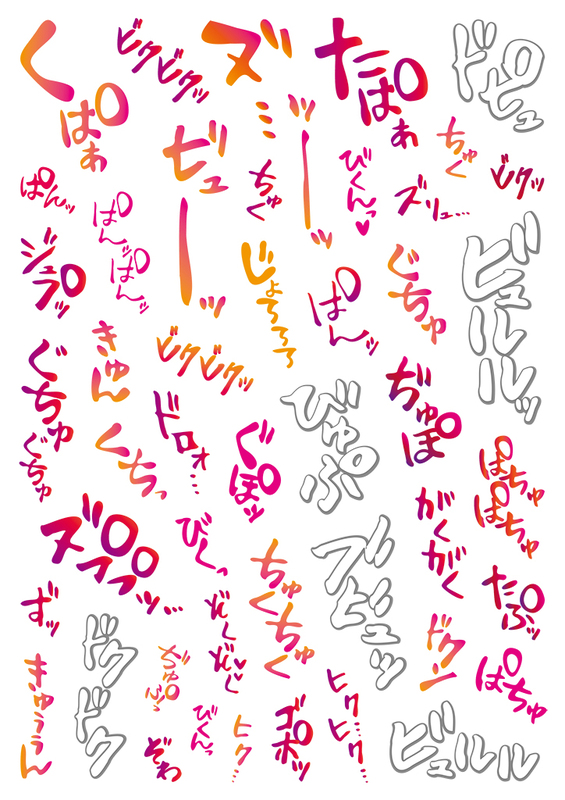 くぱぁ
ビクビクッ
ズ
たぱぁ
ドピュ
ミ
ッ
ッ
ビューッ
ちゅく
びくんっ♥
ちゅく
ズリュ…
ビクッ
ぱんッ
ぱんッぱんッ
ジュプッ
じょろろろ
ぱんッ
ぐちゅ
ビュルルッ
きゅん
ビクビクッ
ぐちゅぐちゅ
くちっ
ドロォ…
ぐぽッ
びゅぷ
ぢゅぽ
ぱちゅぱちゅ
ズププッ…
びくっ
ちゅくちゅく
ブビュッ
がくがく
たぷッ
ずッ
ドクドク
ドクン
ぱちゅ
きゅぅぅん
ぞわ
びくんっ
ヒク…
ゴポッ
ヒクヒク…
ビュルル